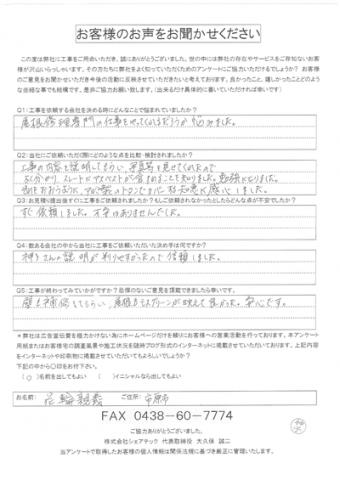 お客様のお声をお聞かせください
この度は弊社に工事をご用命いただき、誠にありがとうございました。世の中には弊社の存在やサービスをご存知ないお客様
が沢山いらっしゃいます。その方たちに弊社をよく知っていただくためのアンケートにご協力いただけるでしょうか？ お客様
のご意見をお聞かせいただき今後の活動に反映させていただきたいと考えております。良かったこと、嬉しかったことどのよう
な些細な事でも結構です。是非ご協力お願い致します。（出来るだけ具体的に書いていただければ幸いです）
Q1:工事を依頼する会社を決める時にどんなことで悩まれていましたか？
屋根修理専門の仕事をやってくれるだろうか悩みました。
Q2:当社にご依頼いただく際にどのような点を比較・検討されましたか？
工事の内容を説明してもらい、写真等を見せてくれたので
スレートにアスベストが含まれることを知りました。勉強になりました。
Q3:お見積り提出後すぐに工事をご依頼されましたか？もしご依頼されなかったとしたらどんな点が不安でしたか？
すぐ依頼しました。不安はありませんでした。
Q4:数ある会社の中から当社に工事をご依頼いただいた決め手は何ですか？
さんの説明が判りやすかったので信頼しました。
Q5:工事が終わってみていかがですか？忌憚のないご意見を頂戴できましたら幸いです。
壁も補修をしてもらい、屋根もモスグリーンが映えて良かった。安心です。
＊弊社は広告宣伝費を極力かけない為にホームページだけを頼りにお客様への営業活動を行っております。本アンケート
用紙またはお客様宅の調査風景や施工状況を随時ブログ形式のインターネットに掲載させていただいております。上記内容
をインターネットや印刷物に掲載させていただいてもよろしいでしょうか？
下記の中から○印をお付下さい。
（○）名前を出してもよい （ ）イニシャルなら出してもよい
お名前： 花輪 ご住所： 市原市
FAX 0438-60-7774
ご協力ありがとうございました。
株式会社シェアテック 代表取締役 大久保 誠二
当アンケートで取得したお客様の個人情報は関係法規に基づき厳正に管理いたします。